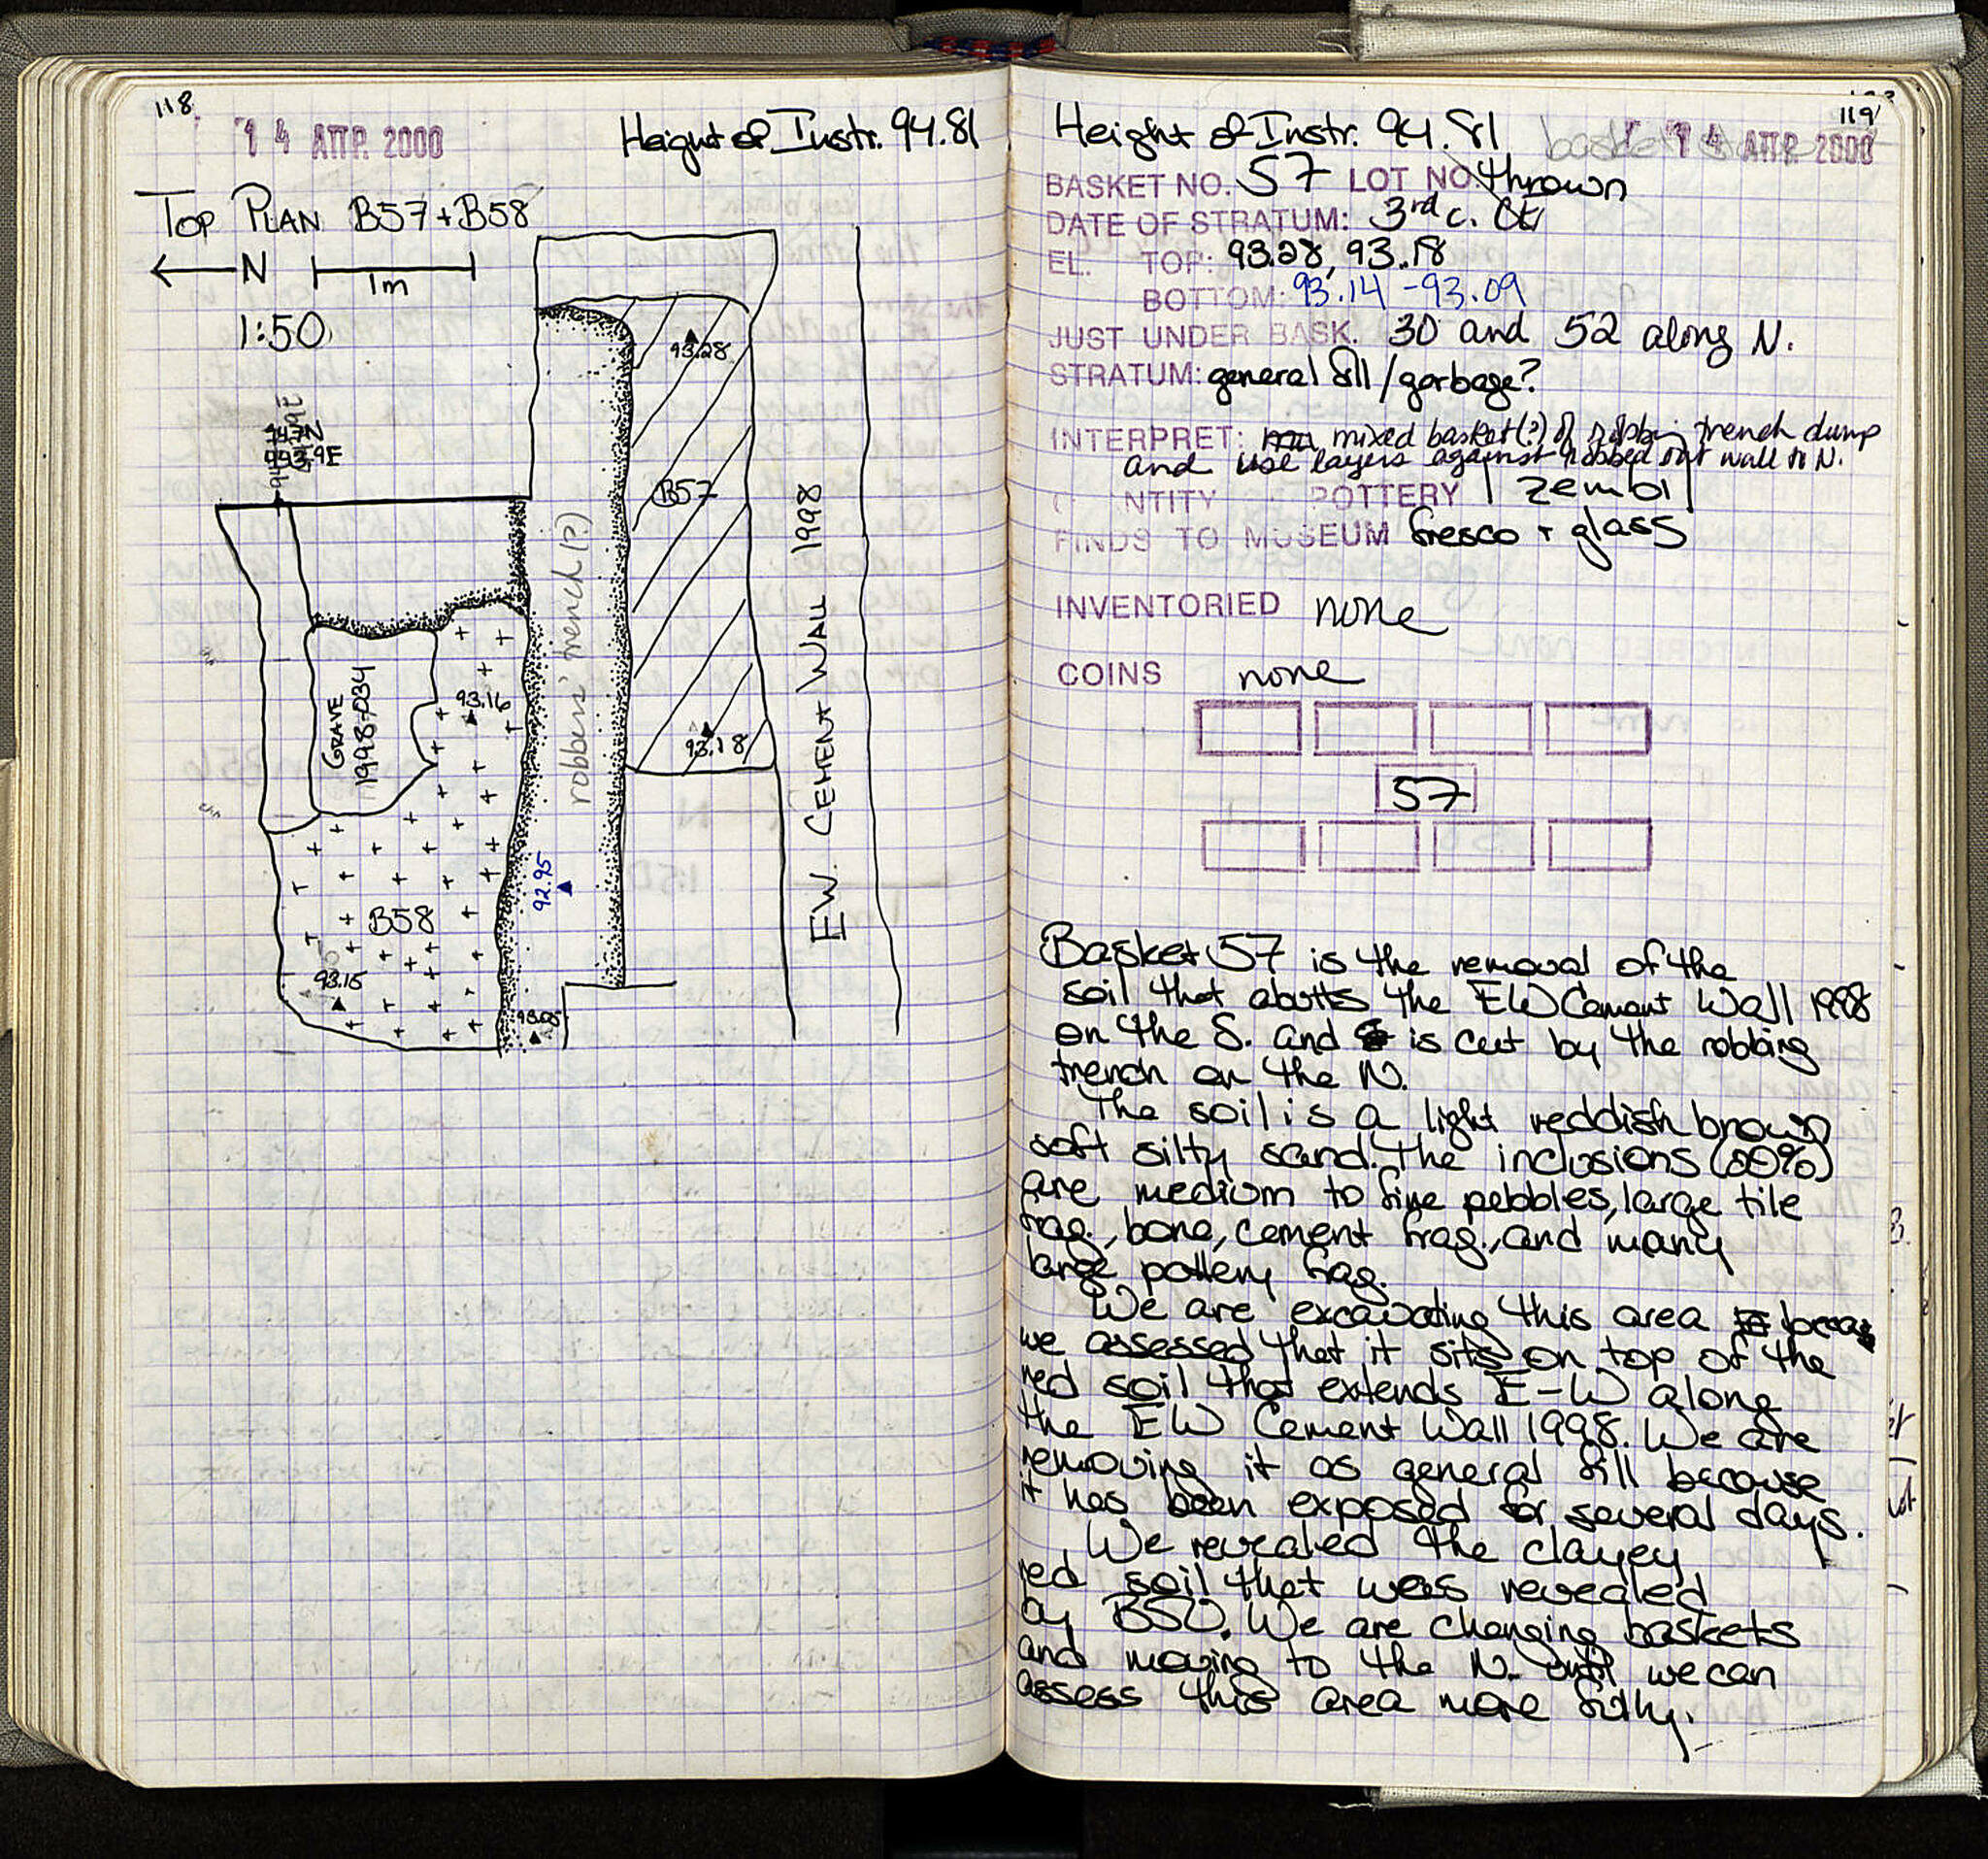 118
14 ΑΠΡ. 2000
Height of Instr. 94.81
TOP PLAN B57+B58
←N
1m
1:50
993.9E
93.28
B57
EW. CEMENT WALL 1998
robbers' trench (?)
GRAVE
1998-034
93.16
92.95
B58
93.15
93.05
93.18
119
Height of Instr. 94.81
14 ΑΠΡ 2000
BASKET NO. 57 LOT NO. thrown
DATE OF STRATUM: 3rd c. CE
EL. TOP: 93.28, 93.18
BOTTOM: 93.14 - 93.09
JUST UNDER BASK. 30 and 52 along N.
STRATUM: general fill/garbage?
INTERPRET: mixed basket(?) of robbing trench dump
and use layers against robbed out wall to N.
NTITY POTTERY 1 zembil
FINDS TO MUSEUM fresco + glass
INVENTORIED none
COINS none
57
Basket 57 is the removal of the
soil that abutts the EW Cement Wall 1998
on the S. and is cut by the robbing
trench on the N.
The soil is a light reddish brown
soft silty sand. The inclusions
are medium to fine pebbles, large tile
frag., bone, cement frag., and many
large pottery frag.
We are excavating this area
we assessed that it sits on top of the
red soil that extends E-W along
the EW Cement Wall 1998. We are
removing it as general fill because
it has been exposed for several days.
We revealed the clayey
red soil that was revealed
by B50. We are changing baskets
and moving to the N. until we can
assess this area more fully.